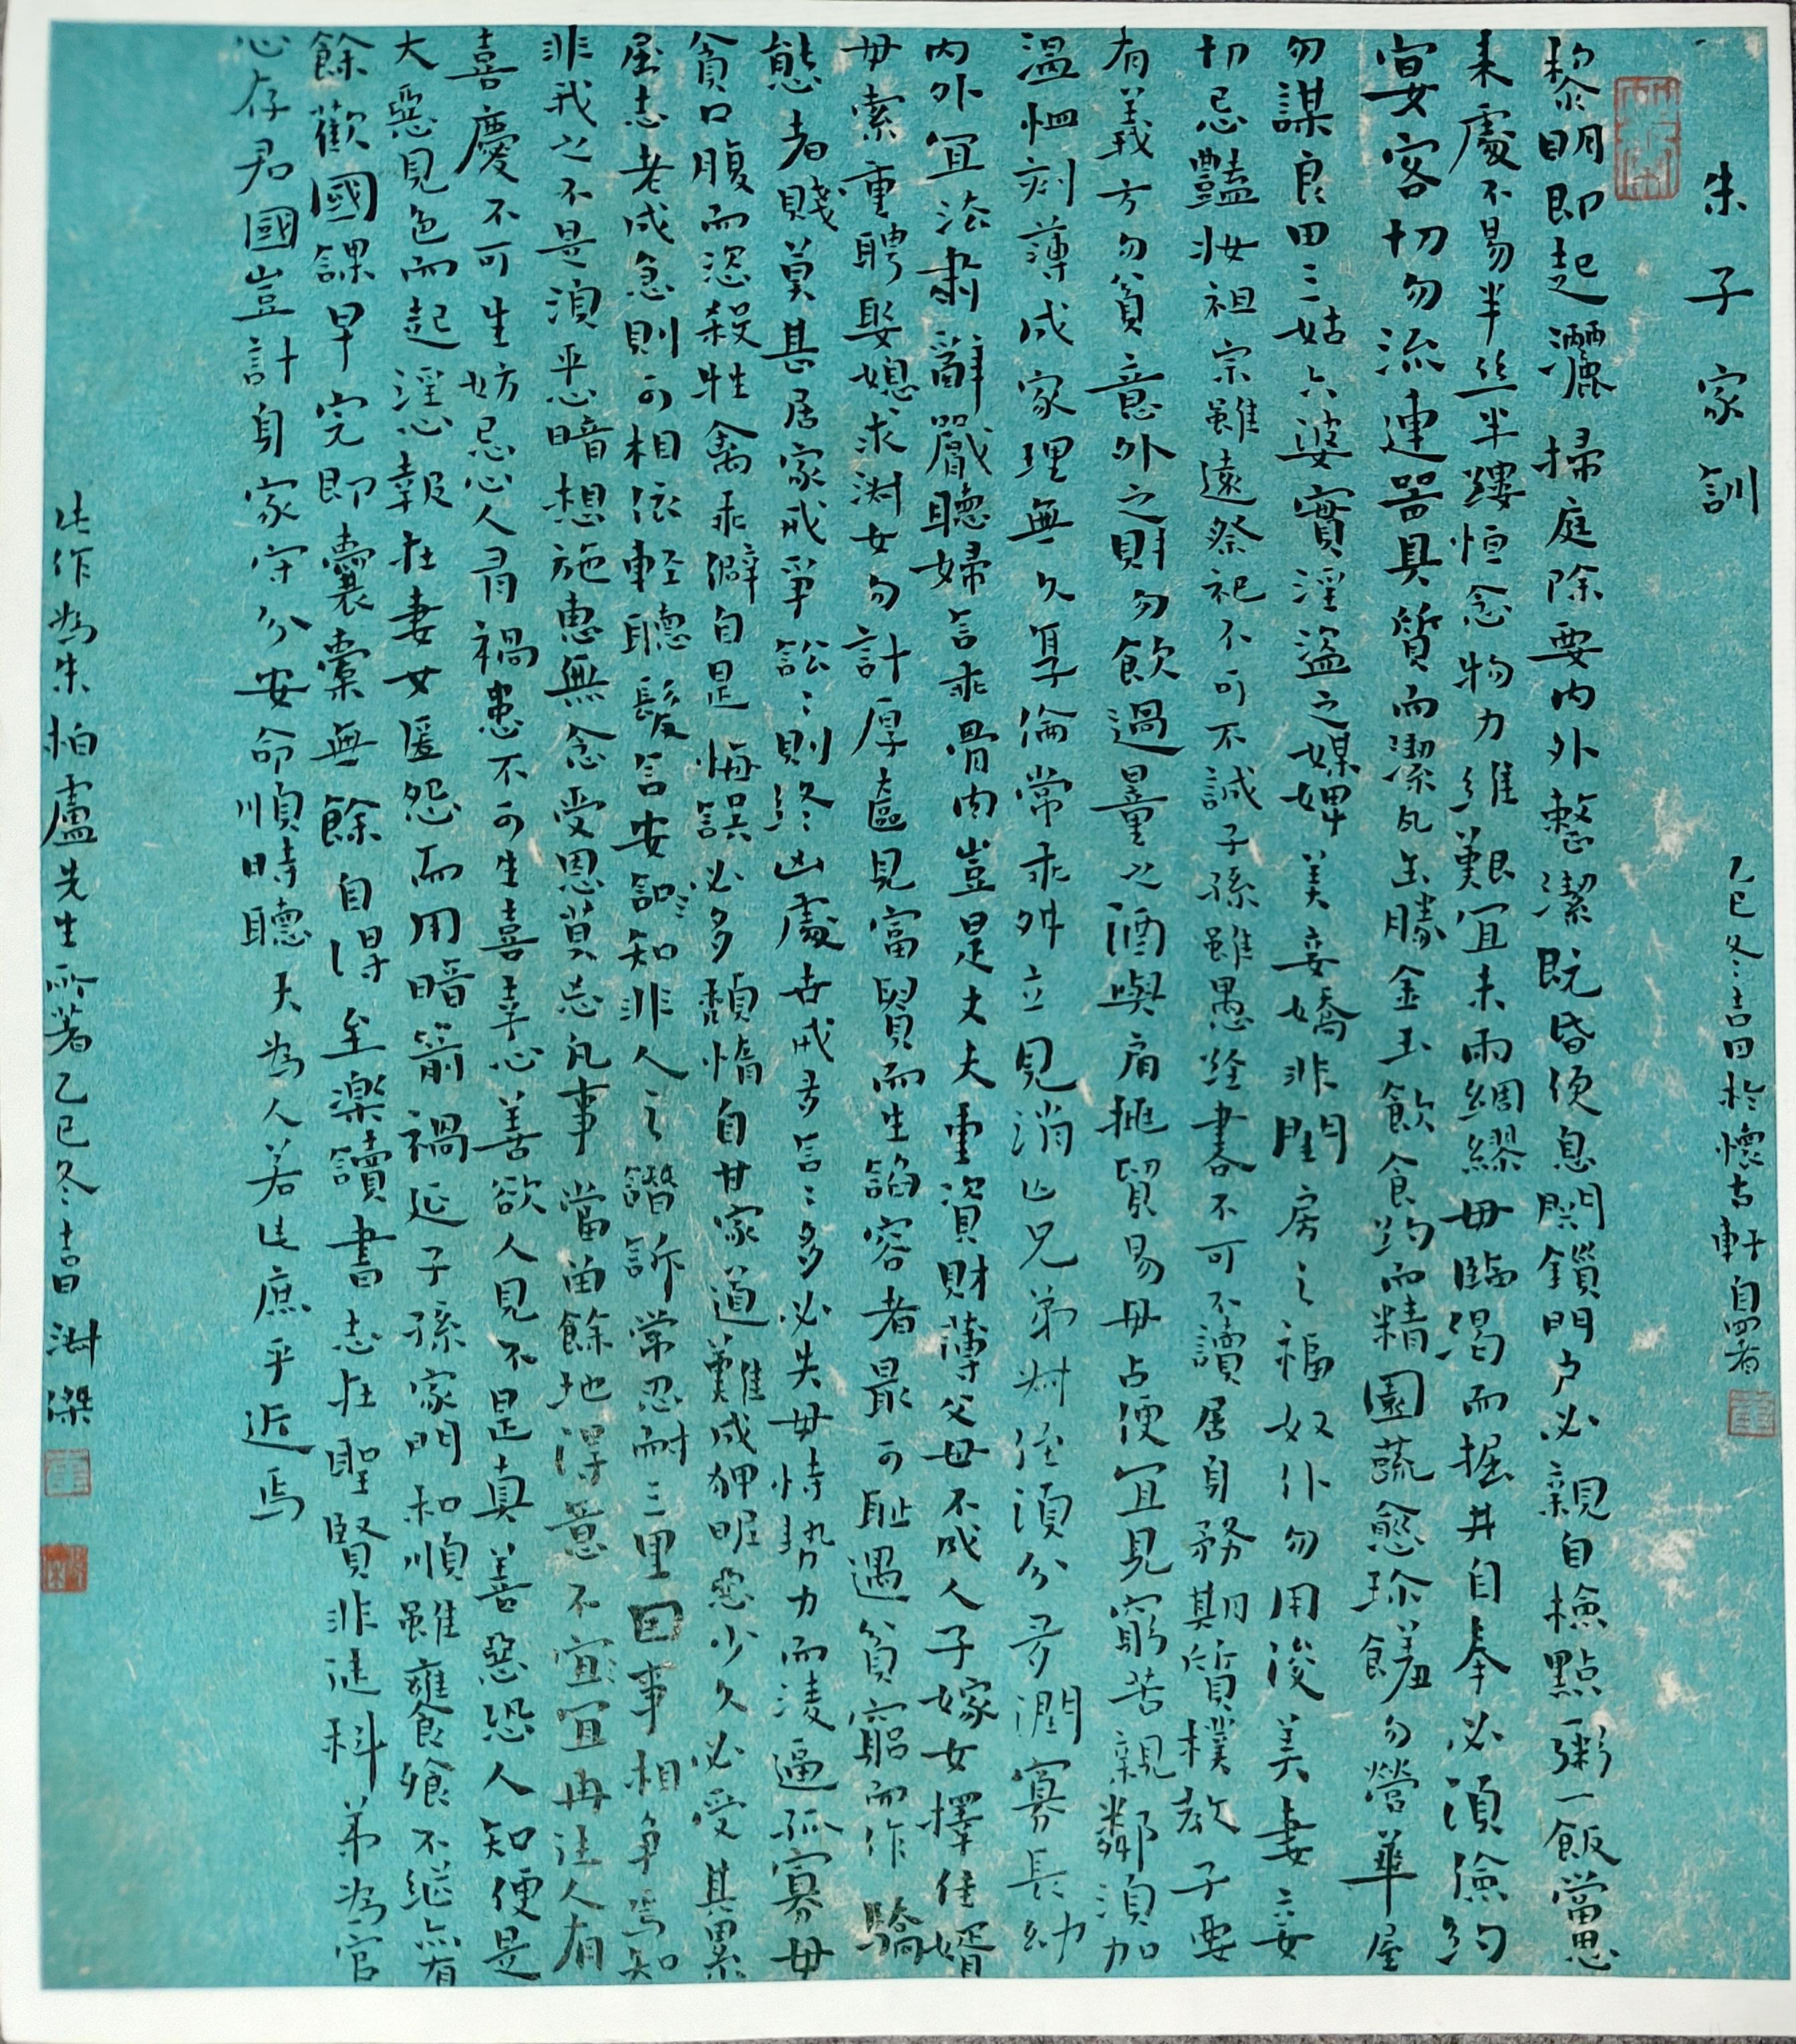 朱子家訓
乙巳冬吉日於懷古軒自署
黎明即起灑掃庭除要內外整潔既昏便息關鎖門户必親自檢點一粥一飯當思
来處不易半丝半縷恒念物力維艱宜未雨綢繆毋臨渴而掘井自奉必須儉約
宴客切勿流連器具質而潔瓦缶勝金玉飲食約而精園蔬愈珍羞勿營華屋
勿謀良田三姑六婆實淫盜之媒婢美妾嬌非閨房之福奴仆勿用俊美妻妾
切忌豔妝祖宗雖遠祭祀不可不誠子孫雖愚經書不可不讀居身務期質樸教子要
有義方勿貪意外之財勿飲過量之酒與肩挑貿易毋占便宜見窮苦親鄰須加
温恤刻薄成家理無久享倫常乖舛立見消亡兄弟叔侄須分多潤寡長幼
内外宜法肅辭嚴聽婦言乖骨肉豈是丈夫重資財薄父母不成人子嫁女擇佳婿
毋索重聘娶媳求淑女勿計厚奩見富貴而生諂容者最可恥遇貧窮而作驕
態者賤莫甚居家戒爭訟訟則終凶處世戒多言言多必失毋恃勢力而淩逼孤寡毋
貪口腹而恣殺牲禽乖僻自是悔誤必多頹惰自甘家道難成狎昵惡少久必受其累
屈志老成急則可相依輕聽發言安知非人之譖訴當忍耐三思因事相爭焉知
非我之不是須平心暗想施惠無念受恩莫忘凡事當留餘地得意不宜再往人有
喜慶不可生妨忌心人有禍患不可生喜幸心善欲人見不是真善惡恐人知便是
大惡見色而起淫心報在妻女匿怨而用暗箭禍延子孫家門和順雖饔飧不繼亦有
餘歡國課早完即囊橐無餘自得至樂讀書志在聖賢非徒科弟為官
心存君國豈計身家守分安命順時聽天為人若此庶乎近焉
此作為朱柏盧先生所著乙巳冬吉日淑傑